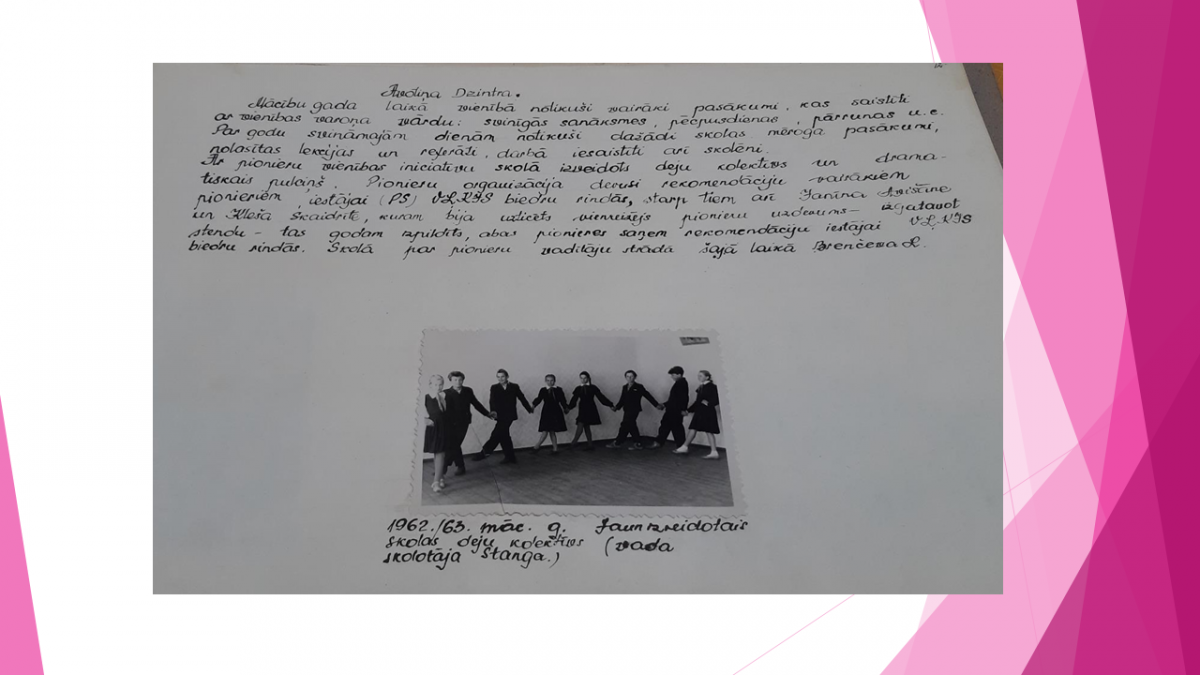 Avotiņa Dzintra.
Mācību gada laikā vienībā notikuši vairāki pasākumi, kas saistīti
ar vienības varoņa vārdu: svinīgās sanāksmes, pēcpusdienas, pārrunas u.c.
Par godu svināmajām dienām notikuši dažādi skolas mēroga pasākumi,
nolasītas lekcijas un referāti, darbā iesaistīti arī skolēni.
Ar pionieru vienības iniciatīvu skolā izveidots deju kolektīvs un drama-
tiskais pulciņš. Pionieru organizācija devusi rekomendāciju vairākiem
pionieriem, iestājai (PS) VĻKJS biedru rindās, starp tiem arī Janīna
un Kleša Skaidrīte, kuram bija uzticēts vienreizējs pionieru uzdevums- izgatavot
stendu - tas godam izpildīts, abas pionieres saņem rekomendāciju iestājai VĻKJS
biedru rindās. Skolā par pionieru vadītāju strādā šajā laikā Brenčeva R.
1962./63. māc. g. Jaunizveidotais
skolas deju kolektīvs (vada
skolotāja Stanga.)